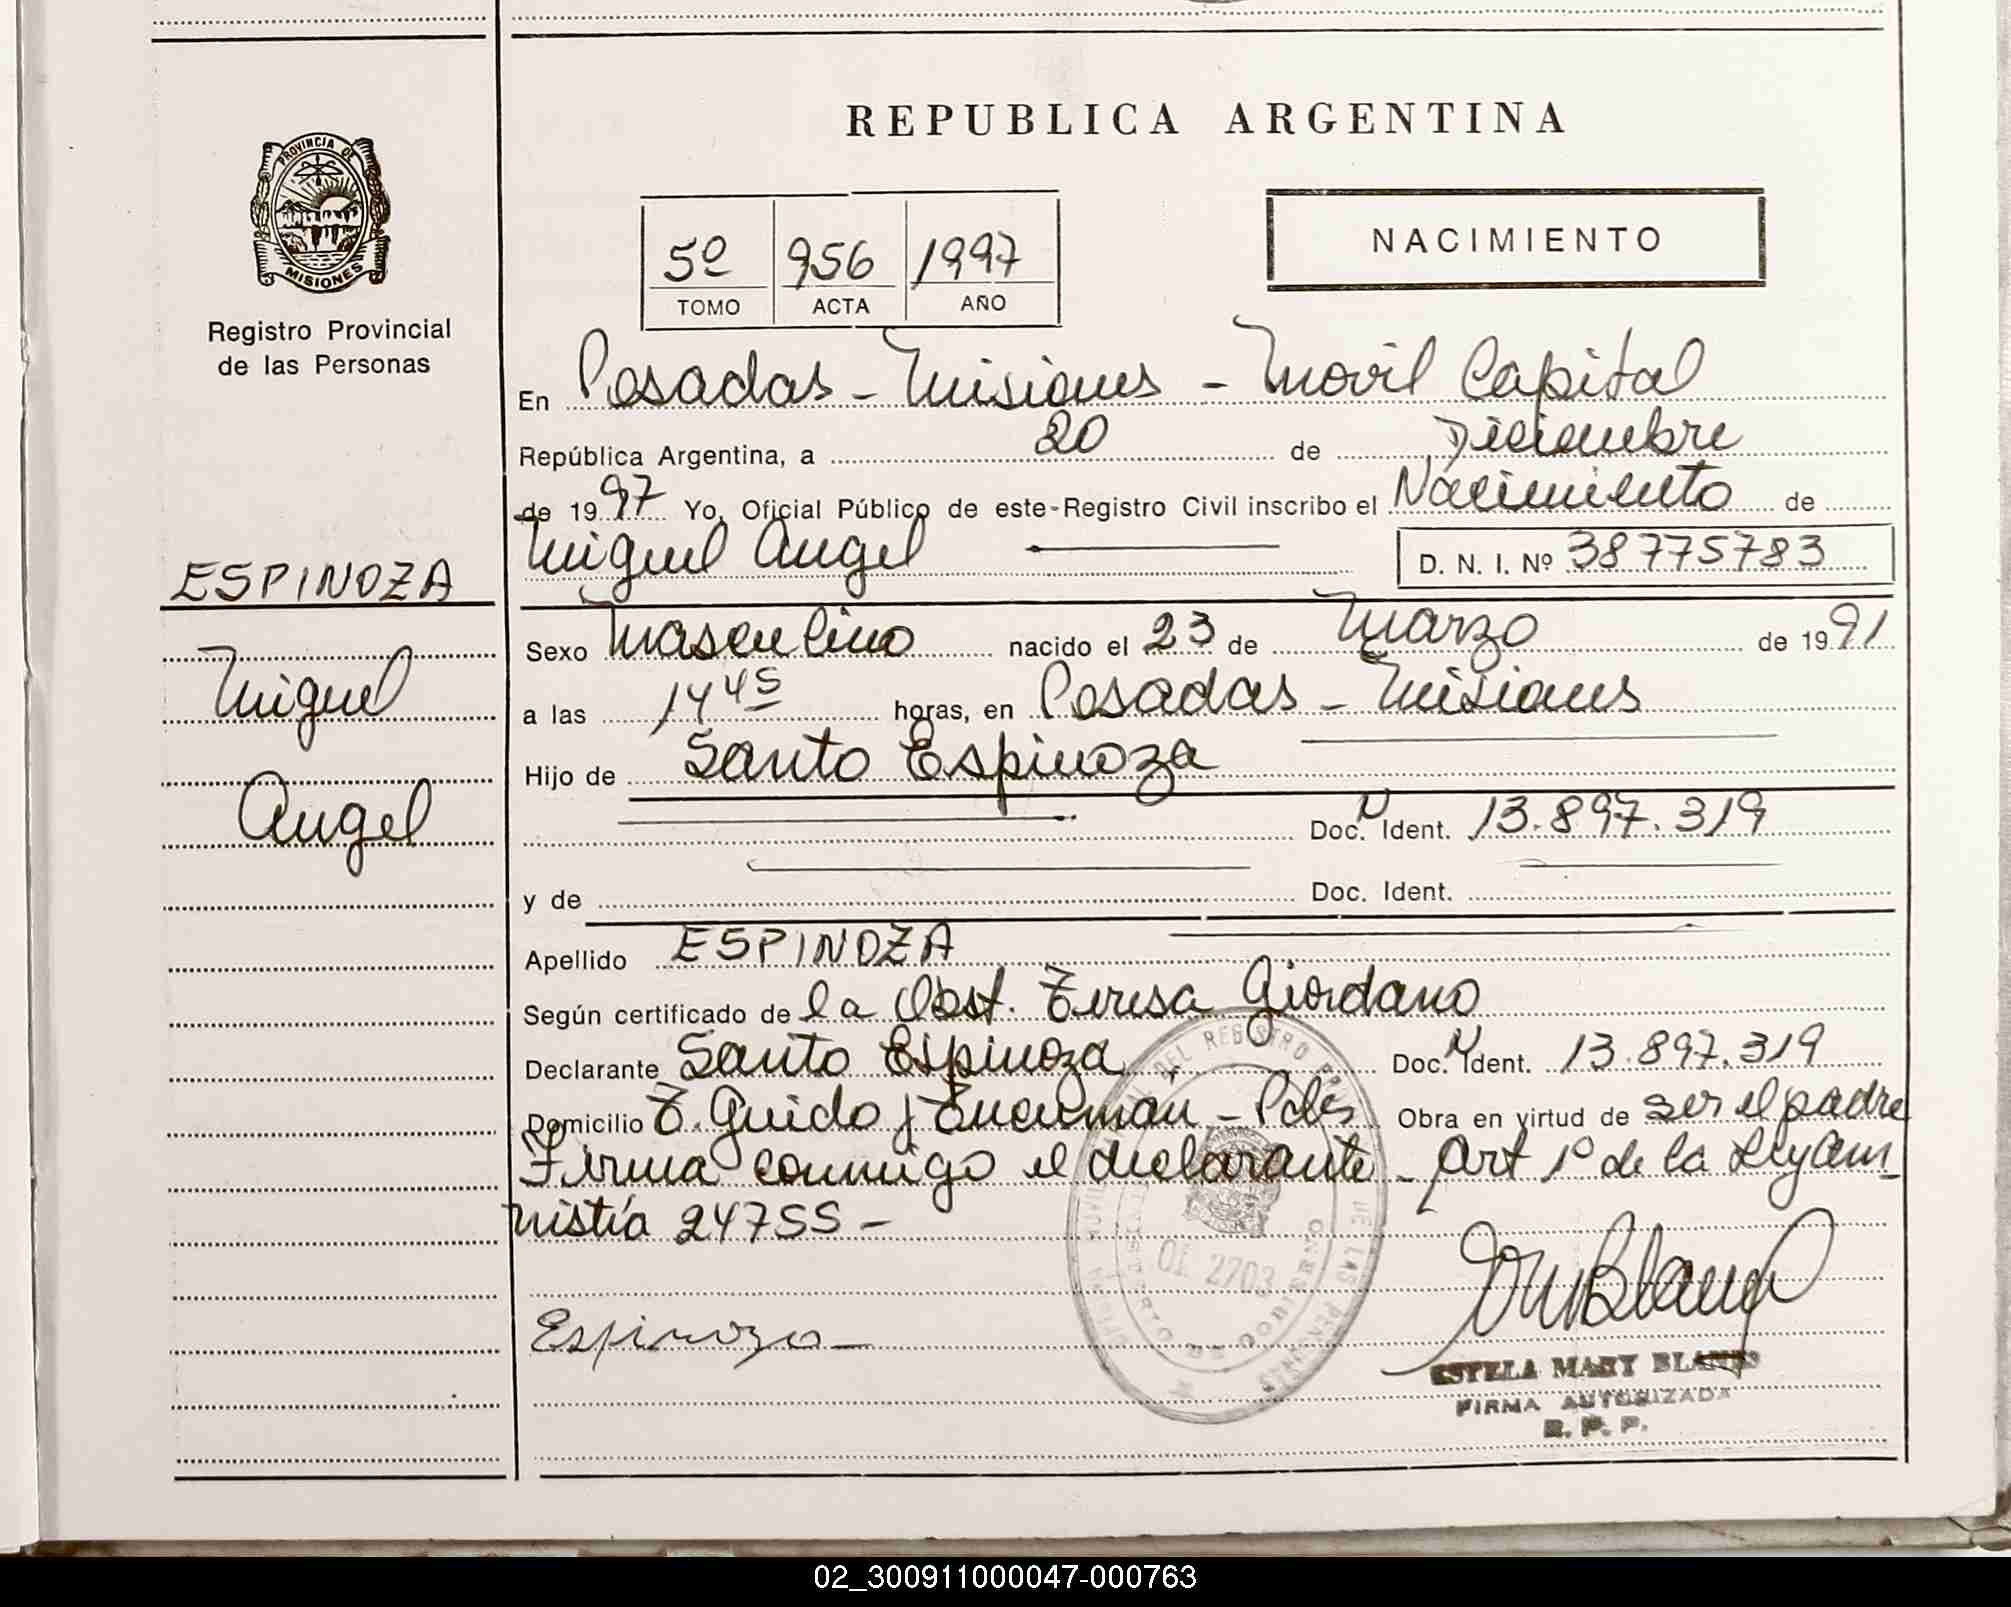 REPUBLICA ARGENTINA
PROVINCIA DE
MISIONES
Registro Provincial
de las Personas
5º 956 1997
TOMO ACTA AÑO
NACIMIENTO
En Posadas - Misiones - Movil Capital
República Argentina, a 20 de Diciembre
de 1997 Yo, Oficial Público de este Registro Civil inscribo el Nacimiento de
Miguel Angel D. N. I. Nº 38775783
ESPINOZA
Miguel
Angel
Sexo Masculino nacido el 23 de Marzo de 1991
a las 14 45 horas, en Posadas - Misiones
Hijo de Santo Espinoza
Doc. N Ident. 13.897.319
y de Doc. Ident.
Apellido ESPINOZA
Según certificado de la Obst. Teresa Giordano
Declarante Santo Espinoza Doc. N Ident. 13.897.319
Domicilio T. Guido y Tucumán - Pdas Obra en virtud de ser el padre
Firma conmigo el declarante - Art 1º de la Ley Am
nistía 24755 -
DEL REGISTRO DE LAS PERSONAS
DE GOBIERNO
01 2703
Espinoza
ESTELA MARY BLANES
FIRMA AUTORIZADA
R. P. P.
02_300911000047-000763